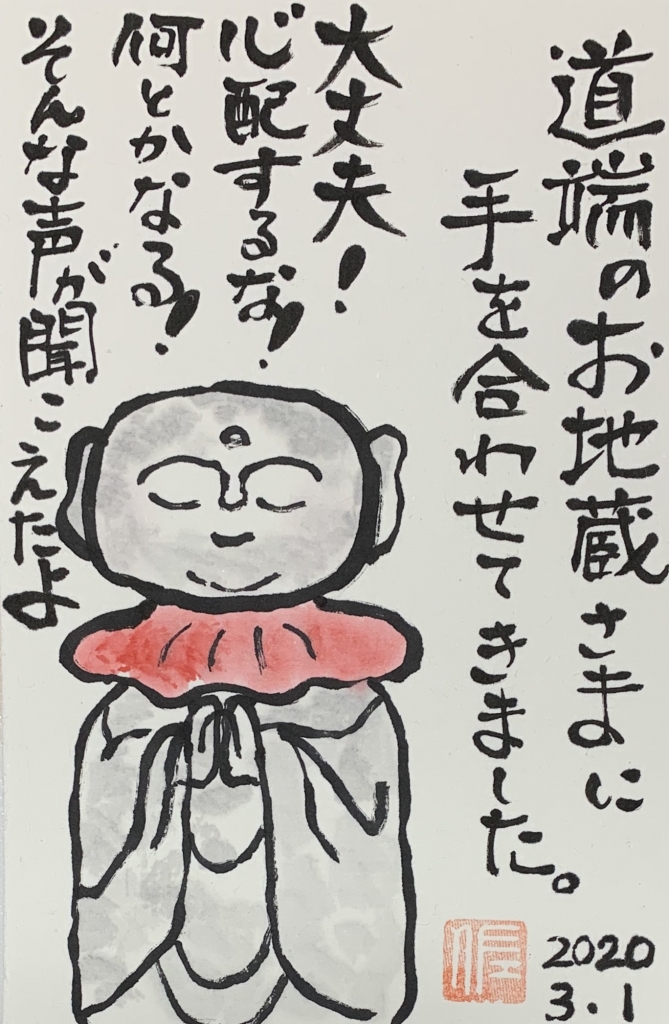 道端のお地蔵さまに
手を合わせてきました。
大丈夫!
心配するな!
何とかなる!
そんな声が聞こえたよ
2020
3.1